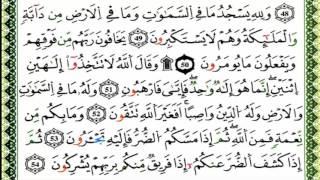 ٤٨ وَلِلَّهِ يَسْجُدُ مَا فِي السَّمَٰوَٰتِ وَمَا فِي الْأَرْضِ مِن دَآبَّةٍ
وَالْمَلَٰٓئِكَةُ وَهُمْ لَا يَسْتَكْبِرُونَ ٤٩ يَخَافُونَ رَبَّهُم مِّن فَوْقِهِمْ
وَيَفْعَلُونَ مَا يُؤْمَرُونَ ۩ ٥٠ وَقَالَ اللَّهُ لَا تَتَّخِذُوٓا إِلَٰهَيْنِ
اثْنَيْنِ إِنَّمَا هُوَ إِلَٰهٌ وَٰحِدٌ فَإِيَّٰيَ فَارْهَبُونِ ٥١ وَلَهُ مَا فِي السَّمَٰوَٰتِ
وَالْأَرْضِ وَلَهُ الدِّينُ وَاصِبًا أَفَغَيْرَ اللَّهِ تَتَّقُونَ ٥٢ وَمَا بِكُم مِّن
نِّعْمَةٍ فَمِنَ اللَّهِ ثُمَّ إِذَا مَسَّكُمُ الضُّرُّ فَإِلَيْهِ تَجْـَٔرُونَ ٥٣ ثُمَّ
إِذَا كَشَفَ الضُّرَّ عَنكُمْ إِذَا فَرِيقٌ مِّنكُم بِرَبِّهِمْ يُشْرِكُونَ ٥٤